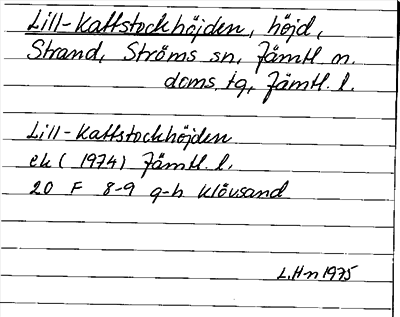 Lill-Kattstockhöjden, höjd,
Strand, Ströms sn, Jämtl. n.
doms. tg, Jämtl. l.
Lill-Kattstockhöjden
ek (1974) Jämtl. l.
20 F 8-9 g-h Klövsand
L.H-n 1975